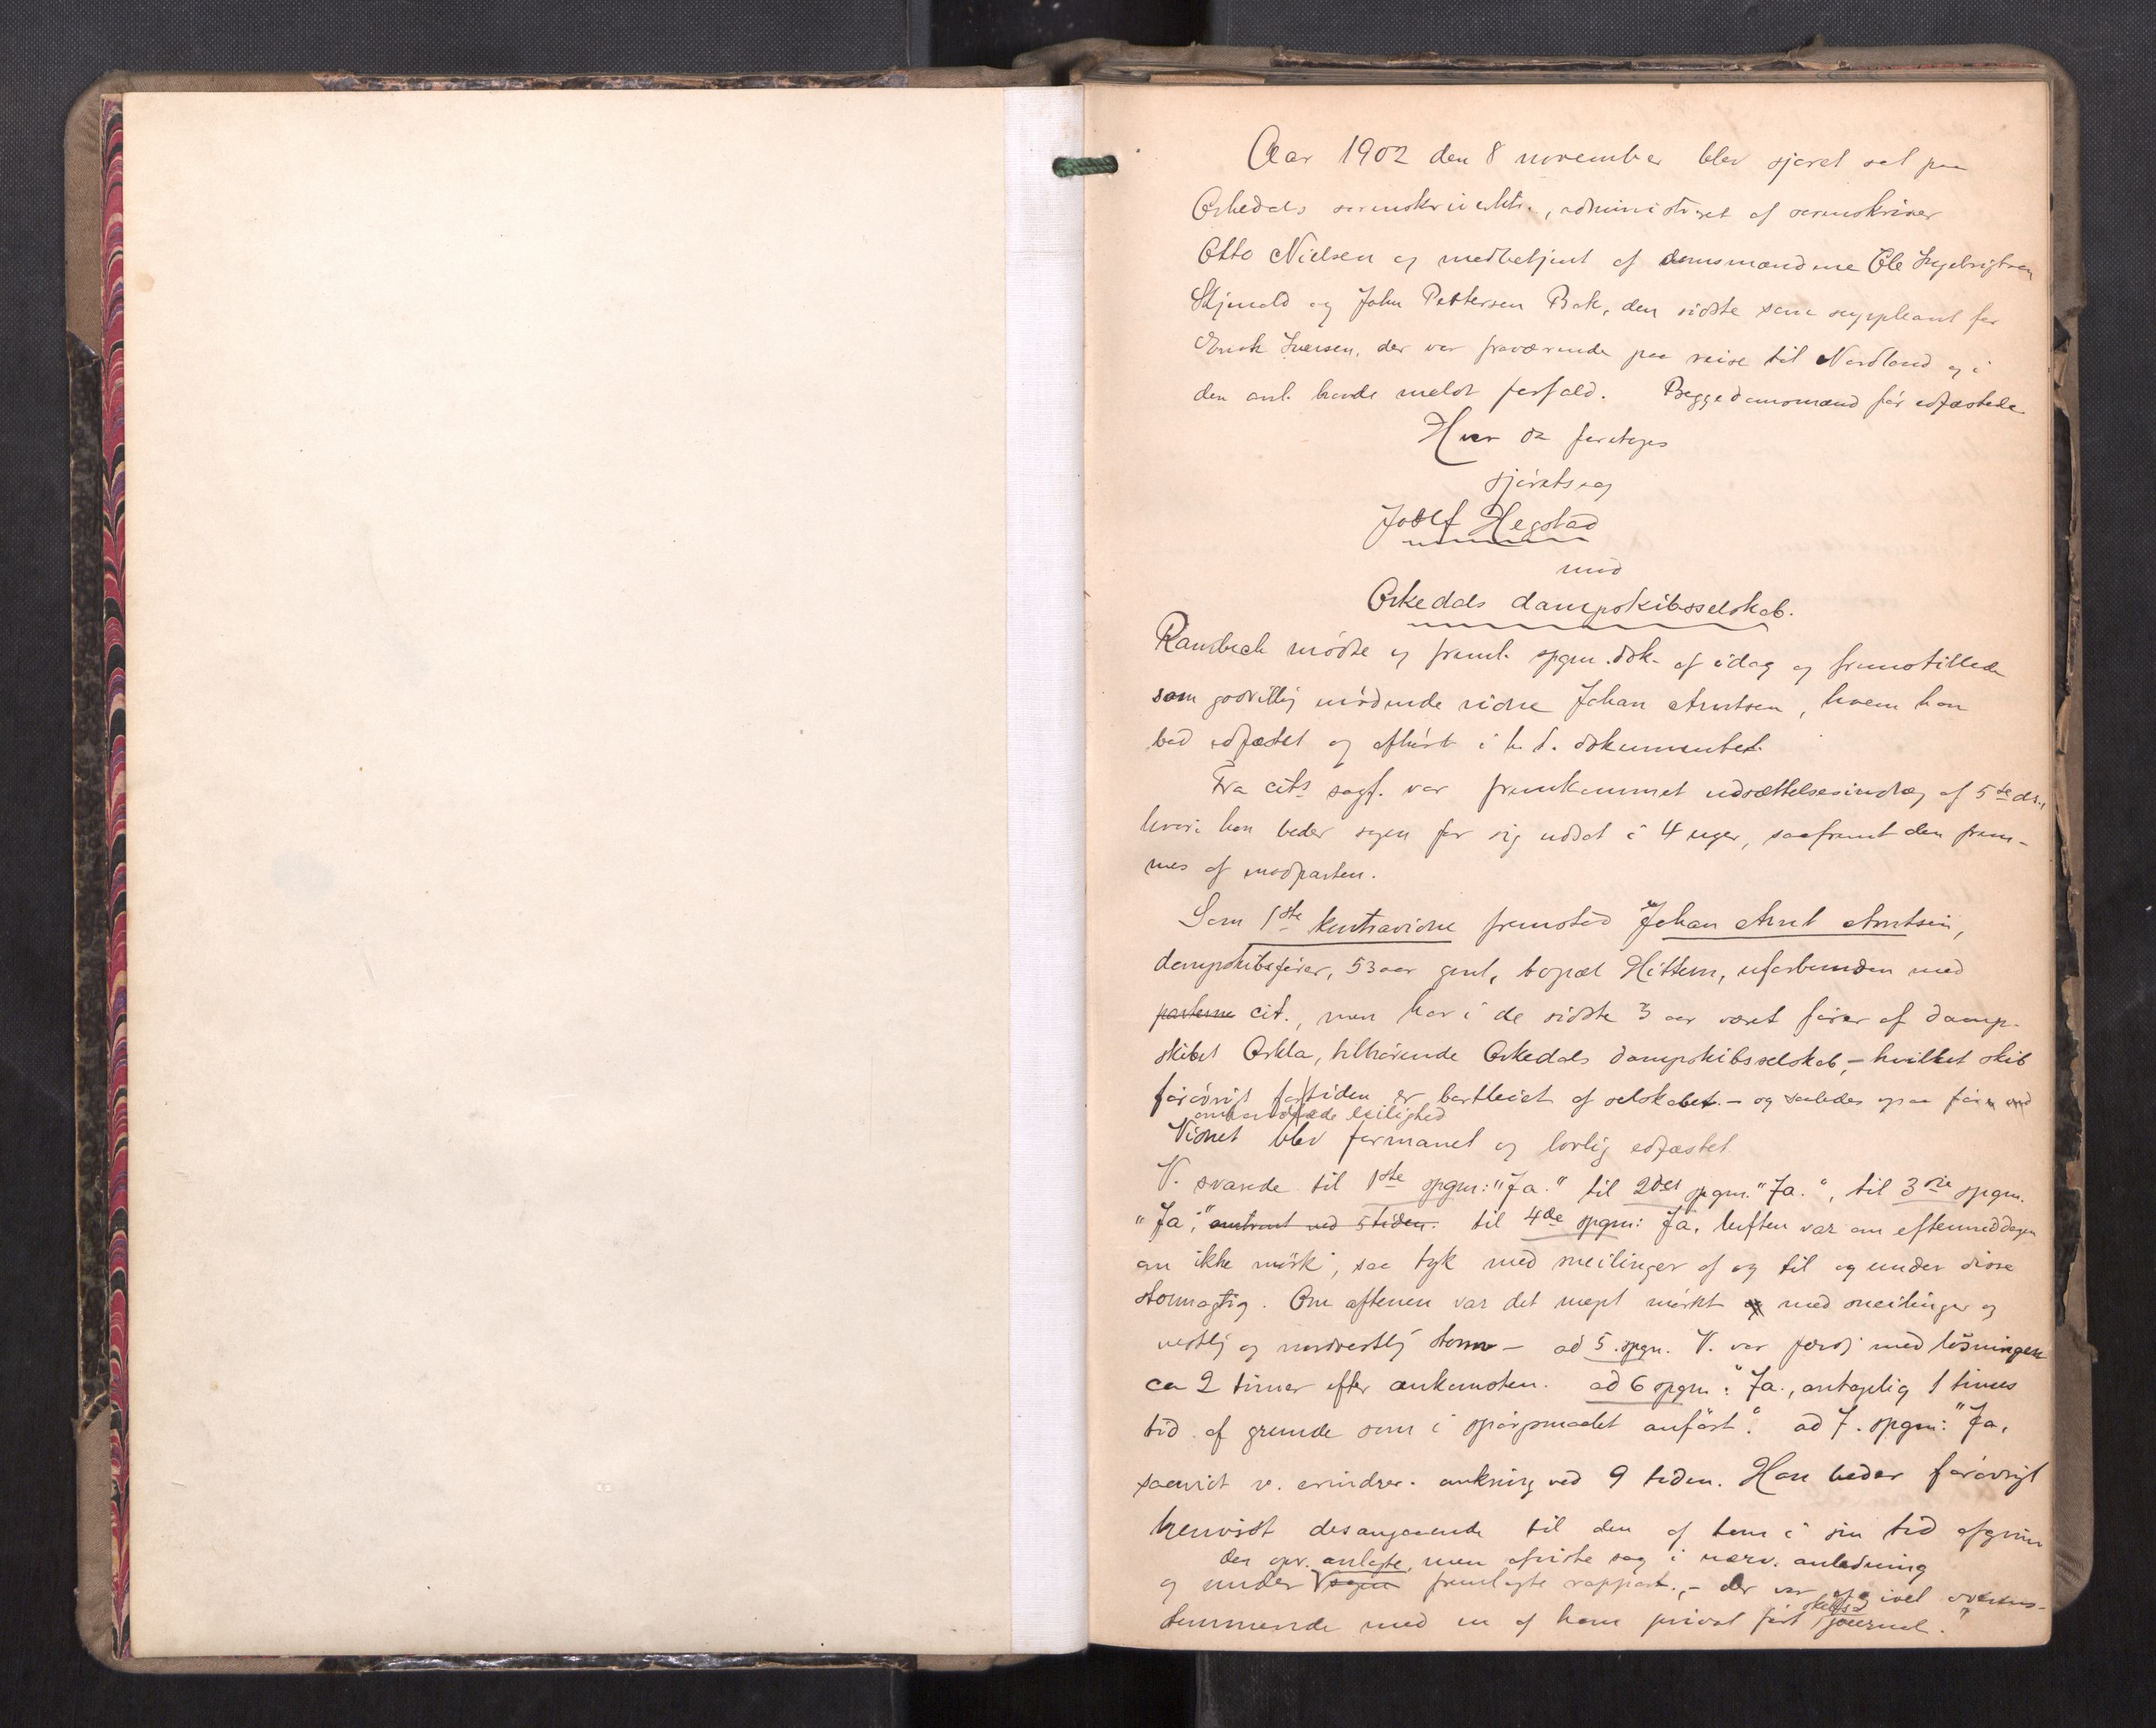 Aar 1902 den 8 november blev sjøret sat paa
Orkedals sorenskriverktr., administreret af sorenskriver
Otto Nielsen og medbetjent af domsmændene Ole Ingebrigtsen
Skjenald og John Pettersen Bak, den sidste som suppleant for
Erick Iversen, der var fraværende paa reise til Nordland og i
den anl. havde meldt forfald. Begge domsmænd før edfæstede.
Hvor da foretages
sjøretssag
Jodlf Hegstad
mod
Orkedals dampskibsselskab.
Ramsbech mødte og freml. spgm. dok. af idag og fremstillede
som godvillig mødende vidne Johan Arntsen, hvem han
bad edfæstet og afhørt i h. t. dokumentet.
Fra cits sagf. var fremkommet udsættelsesindlæg af 5te ds.,
hvori han beder sagen for sig udsat i 4 uger, saafremt den frem-
mes af modparten.
Som 1ste kontravidne fremstod Johan Arnt Arntsen,
dampskibsfører, 53 aar gml., bopæl Hitteren, uforbunden med
parterne cit., men har i de sidste 3 aar været fører af damp-
skibet Orkla, tilhørende Orkedals dampskibsselskab, – hvilket skib
forøvrigt for tiden er bortleiet af selskabet. – og saaledes ogsaa før ved
omhandlede leilighed
Vidnet blev formanet og lovlig edfæstet
V. svarede til 1ste spgm: "Ja." til 2det spgm. "Ja.", til 3die spgm.
"Ja", omtrent ved 5 tiden. til 4de spgm: Ja, luften var om eftermiddagen
om ikke mørk, saa tyk med sneilinger af og til og under disse
stormagtig. Om aftenen var det meget mørkt og med sneilinger og
vestlig og nordvestlig storm – ad 5. spgm. V. var færdig med løsningen
ca 2 timer efter ankomsten. ad 6 spgm: "Ja., antagelig 1 times
tid af grunde som i spørgsmaalet anført." ad 7. spgm: "Ja,
saavidt v. erindrer. omkring ved 9 tiden. Han beder forøvrigt
henvist desangaaende til den af ham i sin tid afgivne
den opr. anlagte, men afviste sag i nærv. anledning
og under sagen fremlagte rapport., – der var afgivet overens-
stemmende med en af ham privat ført skibs journal."